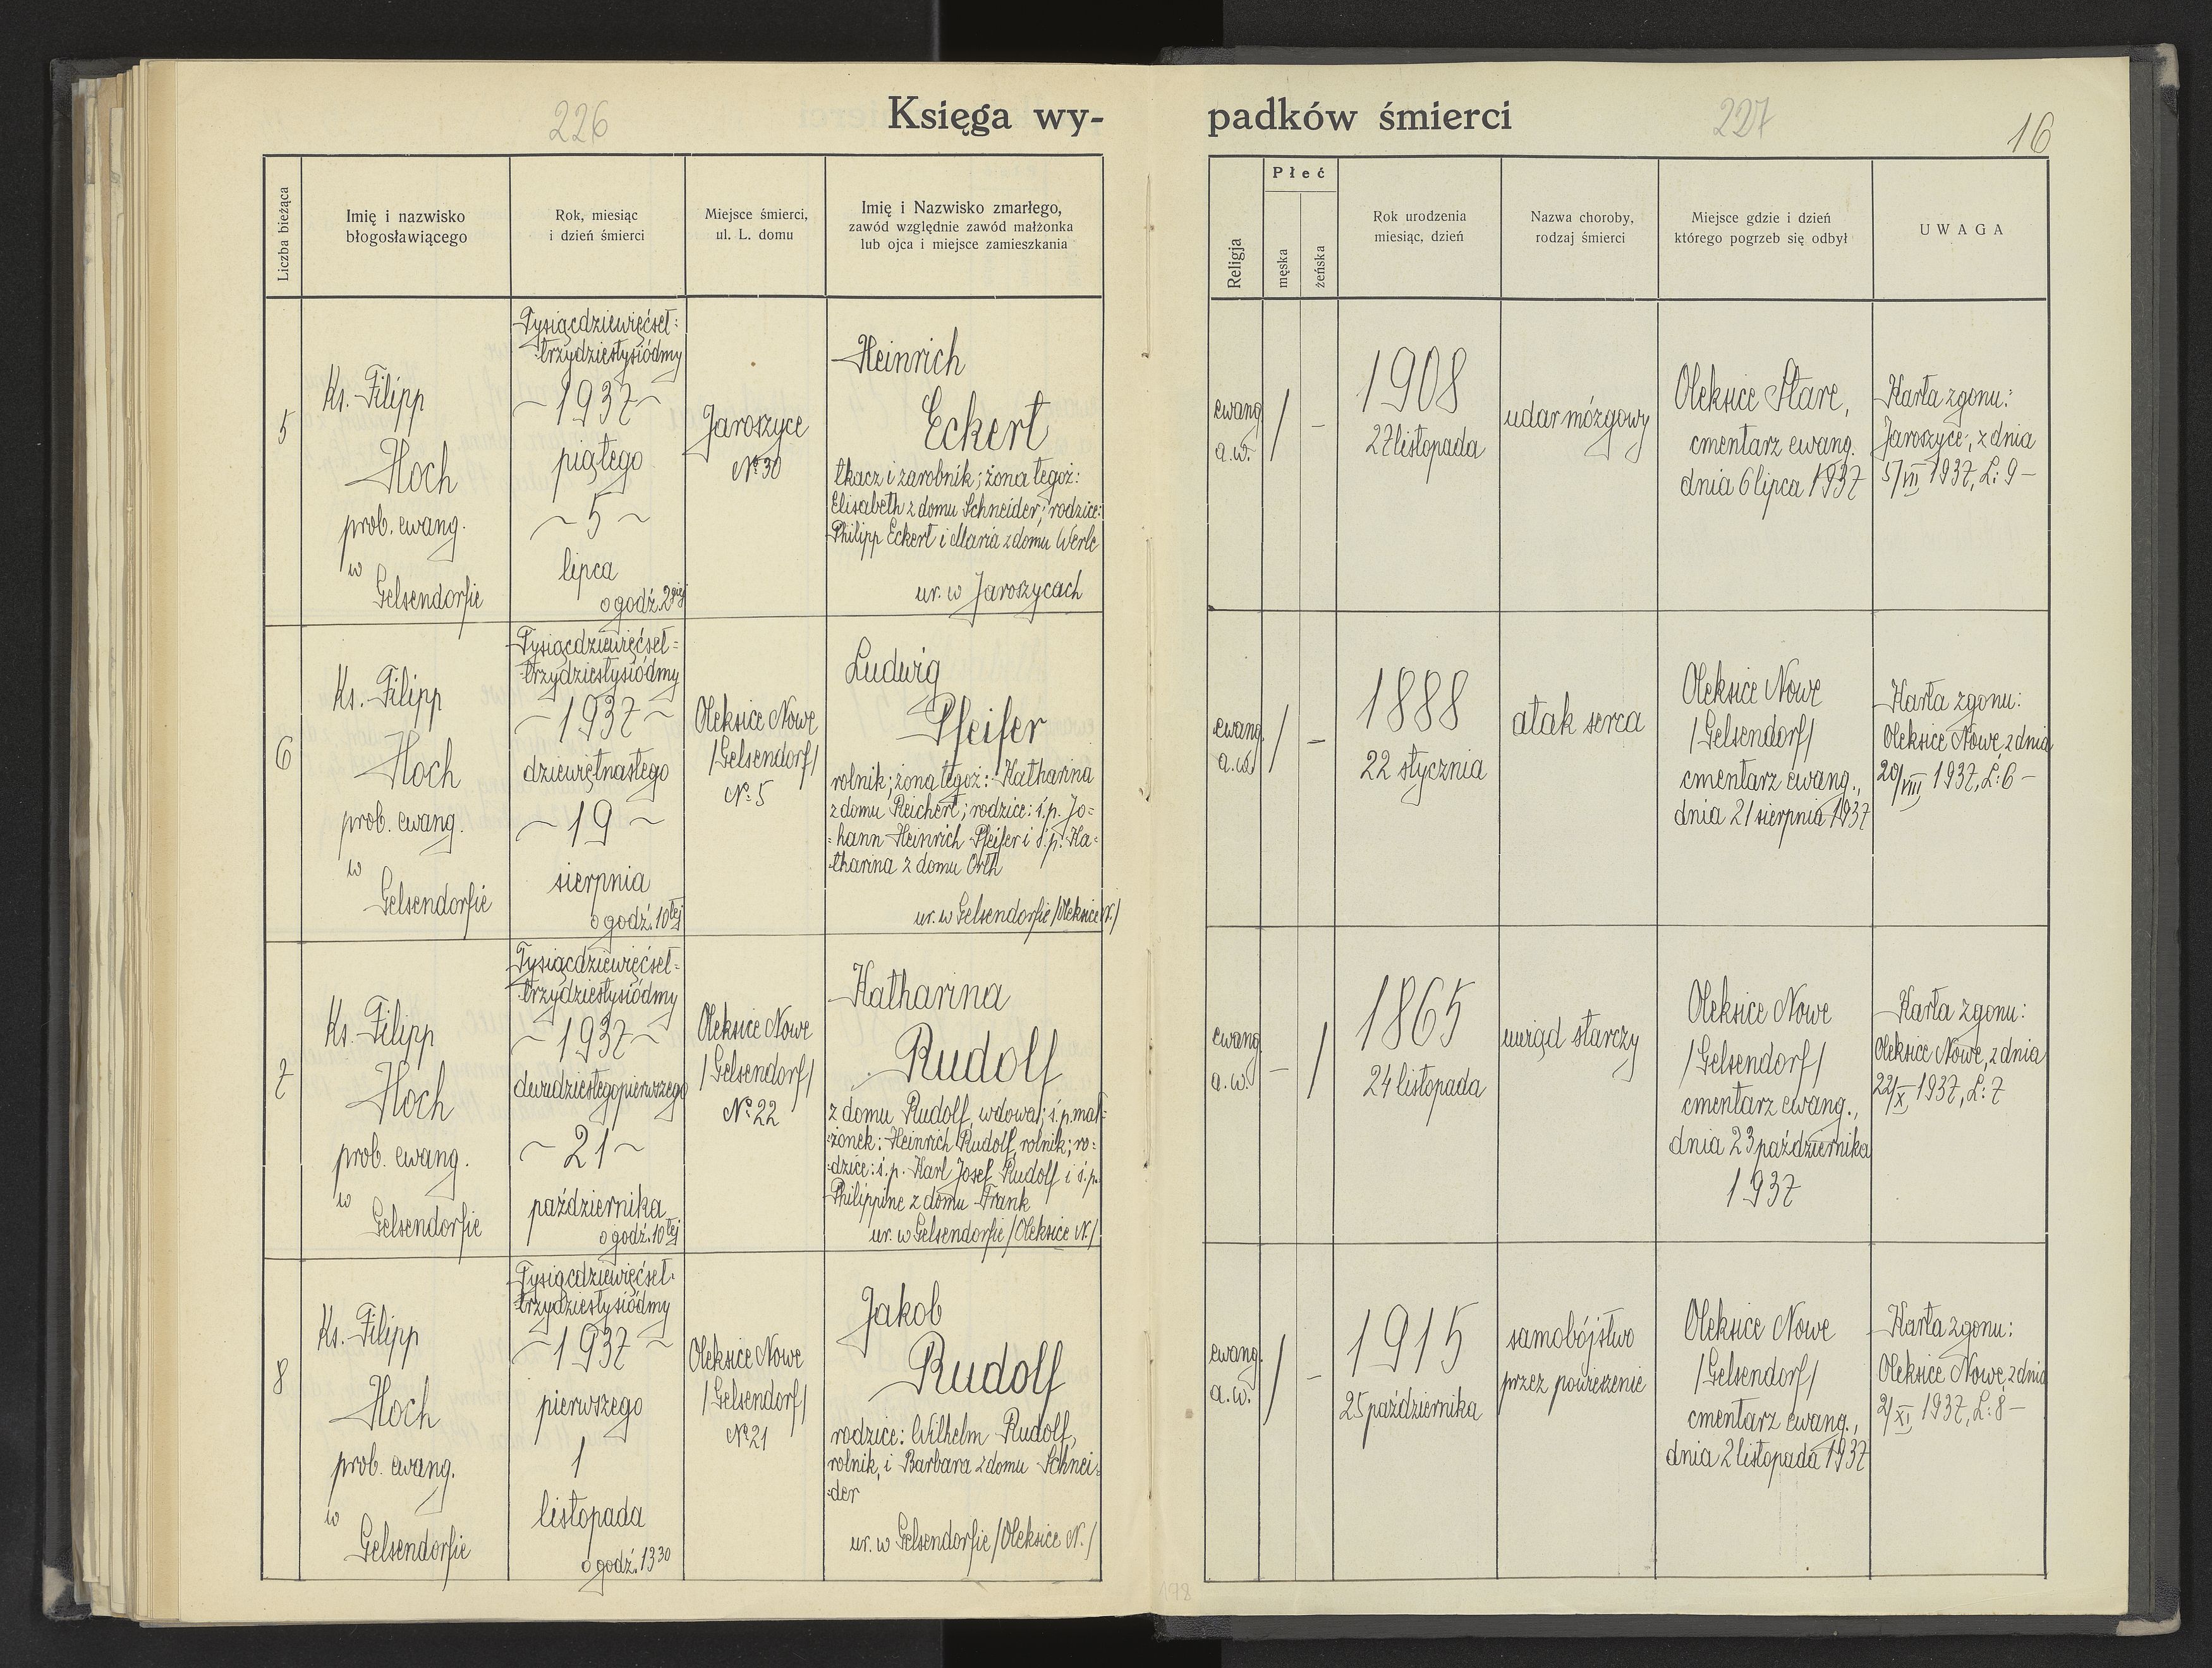 226
Księga wy-
padków śmierci
227
16
Liczba bieżąca
Imię i nazwisko
błogosławiącego
Rok, miesiąc
i dzień śmierci
Miejsce śmierci,
ul. L. domu
Imię i Nazwisko zmarłego,
zawód względnie zawód małżonka
lub ojca i miejsce zamieszkania
Religja
Płeć
męska
żeńska
Rok urodzenia
miesiąc, dzień
Nazwa choroby,
rodzaj śmierci
Miejsce gdzie i dzień
którego pogrzeb się odbył
UWAGA
5
Ks. Filipp
Hoch
prob. ewang.
w
Gelsendorfie
Tysiącdziewięćset=
trzydziestysiódmy
~1937~
piątego
~5~
lipca
o godź. 2giej
Jaroszyce
№ 30
Heinrich
Eckert
tkacz i zarobnik; żona tegoż:
Elisabeth z domu Schneider; rodzice:
Philipp Eckert i Maria z domu Werle
ur. w Jaroszycach
ewang.
a.w.
/
–
1908
27 listopada
udar mózgowy
Oleksice Stare,
cmentarz ewang.
dnia 6 lipca 1937
Karta zgonu:
Jaroszyce, z dnia
5/VII 1937, L: 9–
6
Ks. Filipp
Hoch
prob. ewang.
w
Gelsendorfie
Tysiącdziewięćset=
trzydziestysiódmy
~1937~
dziewiętnastego
~19~
sierpnia
o godź. 10tej
Oleksice Nowe
/Gelsendorf/
№ 5
Ludwig
Pfeifer
rolnik; żona tegoż: Katharina
z domu Reichert; rodzice: ś.p. Jo=
=hann Heinrich Pfeifer i ś.p. Ka=
tharina z domu Orth
ur. w Gelsendorfie /Oleksice N./
ewang.
a.w.
/
–
1888
22 stycznia
atak serca
Oleksice Nowe
/Gelsendorf/
cmentarz ewang.,
dnia 21 sierpnia 1937
Karta zgonu:
Oleksice Nowe, z dnia
20/VIII 1937, L: 6–
7
Ks. Filipp
Hoch
prob. ewang.
w
Gelsendorfie
Tysiącdziewięćset=
trzydziestysiódmy
~1937~
dwudziestegopierwszego
~21~
października
o godź. 10tej
Oleksice Nowe
/Gelsendorf/
№ 22
Katharina
Rudolf
z domu Rudolf, wdowa; ś.p. mał=
=żonek: Heinrich Rudolf, rolnik; ro=
=dzice: ś.p. Karl Josef Rudolf i ś.p.
Philippine z domu Frank
ur. w Gelsendorfie /Oleksice N./
ewang.
a.w.
–
/
1865
24 listopada
uwiąd starczy
Oleksice Nowe
/Gelsendorf/
cmentarz ewang.,
dnia 23 października
1937
Karta zgonu:
Oleksice Nowe, z dnia
22/X 1937, L: 7
8
Ks. Filipp
Hoch
prob. ewang.
w
Gelsendorfie
Tysiącdziewięćset=
trzydziestysiódmy
~1937~
pierwszego
1
listopada
o godź. 13 30
Oleksice Nowe
/Gelsendorf/
№ 21
Jakob
Rudolf
rodzice: Wilhelm Rudolf,
rolnik, i Barbara z domu Schnei=
=der
ur. w Gelsendorfie /Oleksice N./
ewang.
a.w.
/
–
1915
25 października
samobójstwo
przez powieszenie
Oleksice Nowe
/Gelsendorf/
cmentarz ewang.,
dnia 2 listopada 1937
Karta zgonu:
Oleksice Nowe, z dnia
2/XI 1937, L: 8–
198